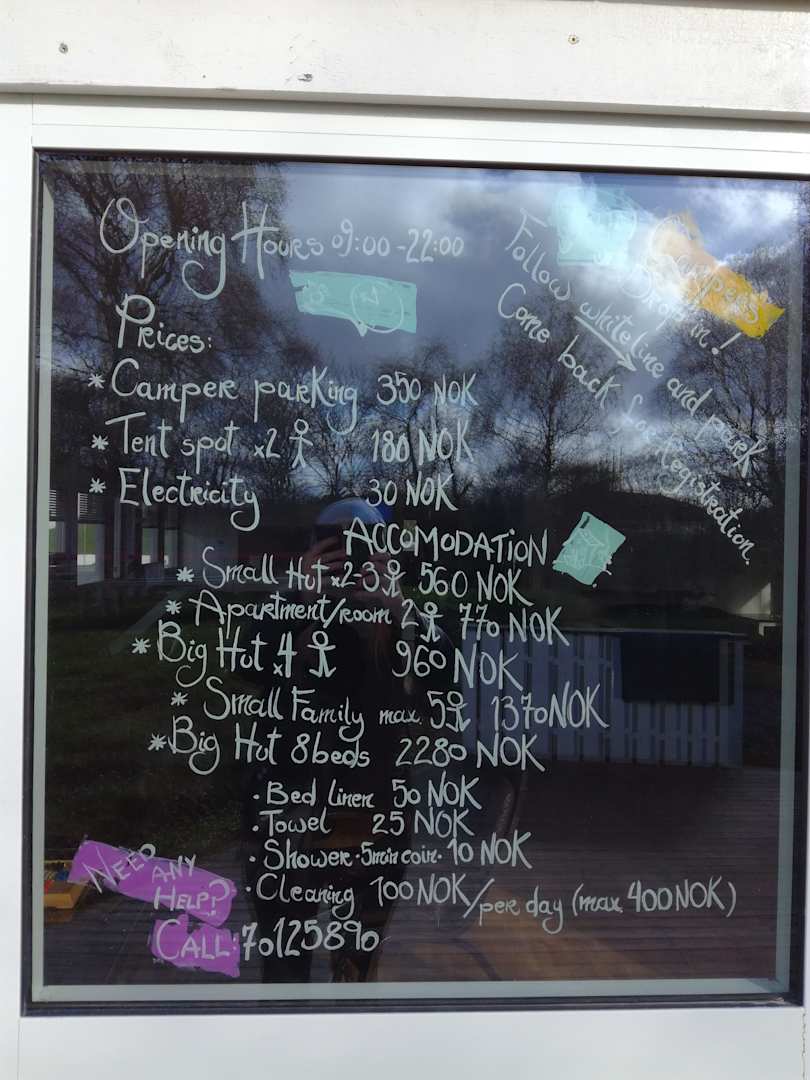 Opening Hours 09:00 - 22:00
Campers
Drop in!
Follow whiteline and park.
Come back for Registration.
Prices:
* Camper parking 350 NOK
* Tent spot x2 180 NOK
* Electricity 30 NOK
ACCOMODATION
* Small Hut x2-3 560 NOK
* Apartment/room 2 770 NOK
* Big Hut x4 960 NOK
* Small Family max. 5 1370 NOK
* Big Hut 8beds 2280 NOK
· Bed linen 50 NOK
· Towel 25 NOK
· Shower · 5min coin · 10 NOK
· Cleaning 100 NOK/per day (max. 400 NOK)
NEED ANY
HELP?
CALL: 70125890